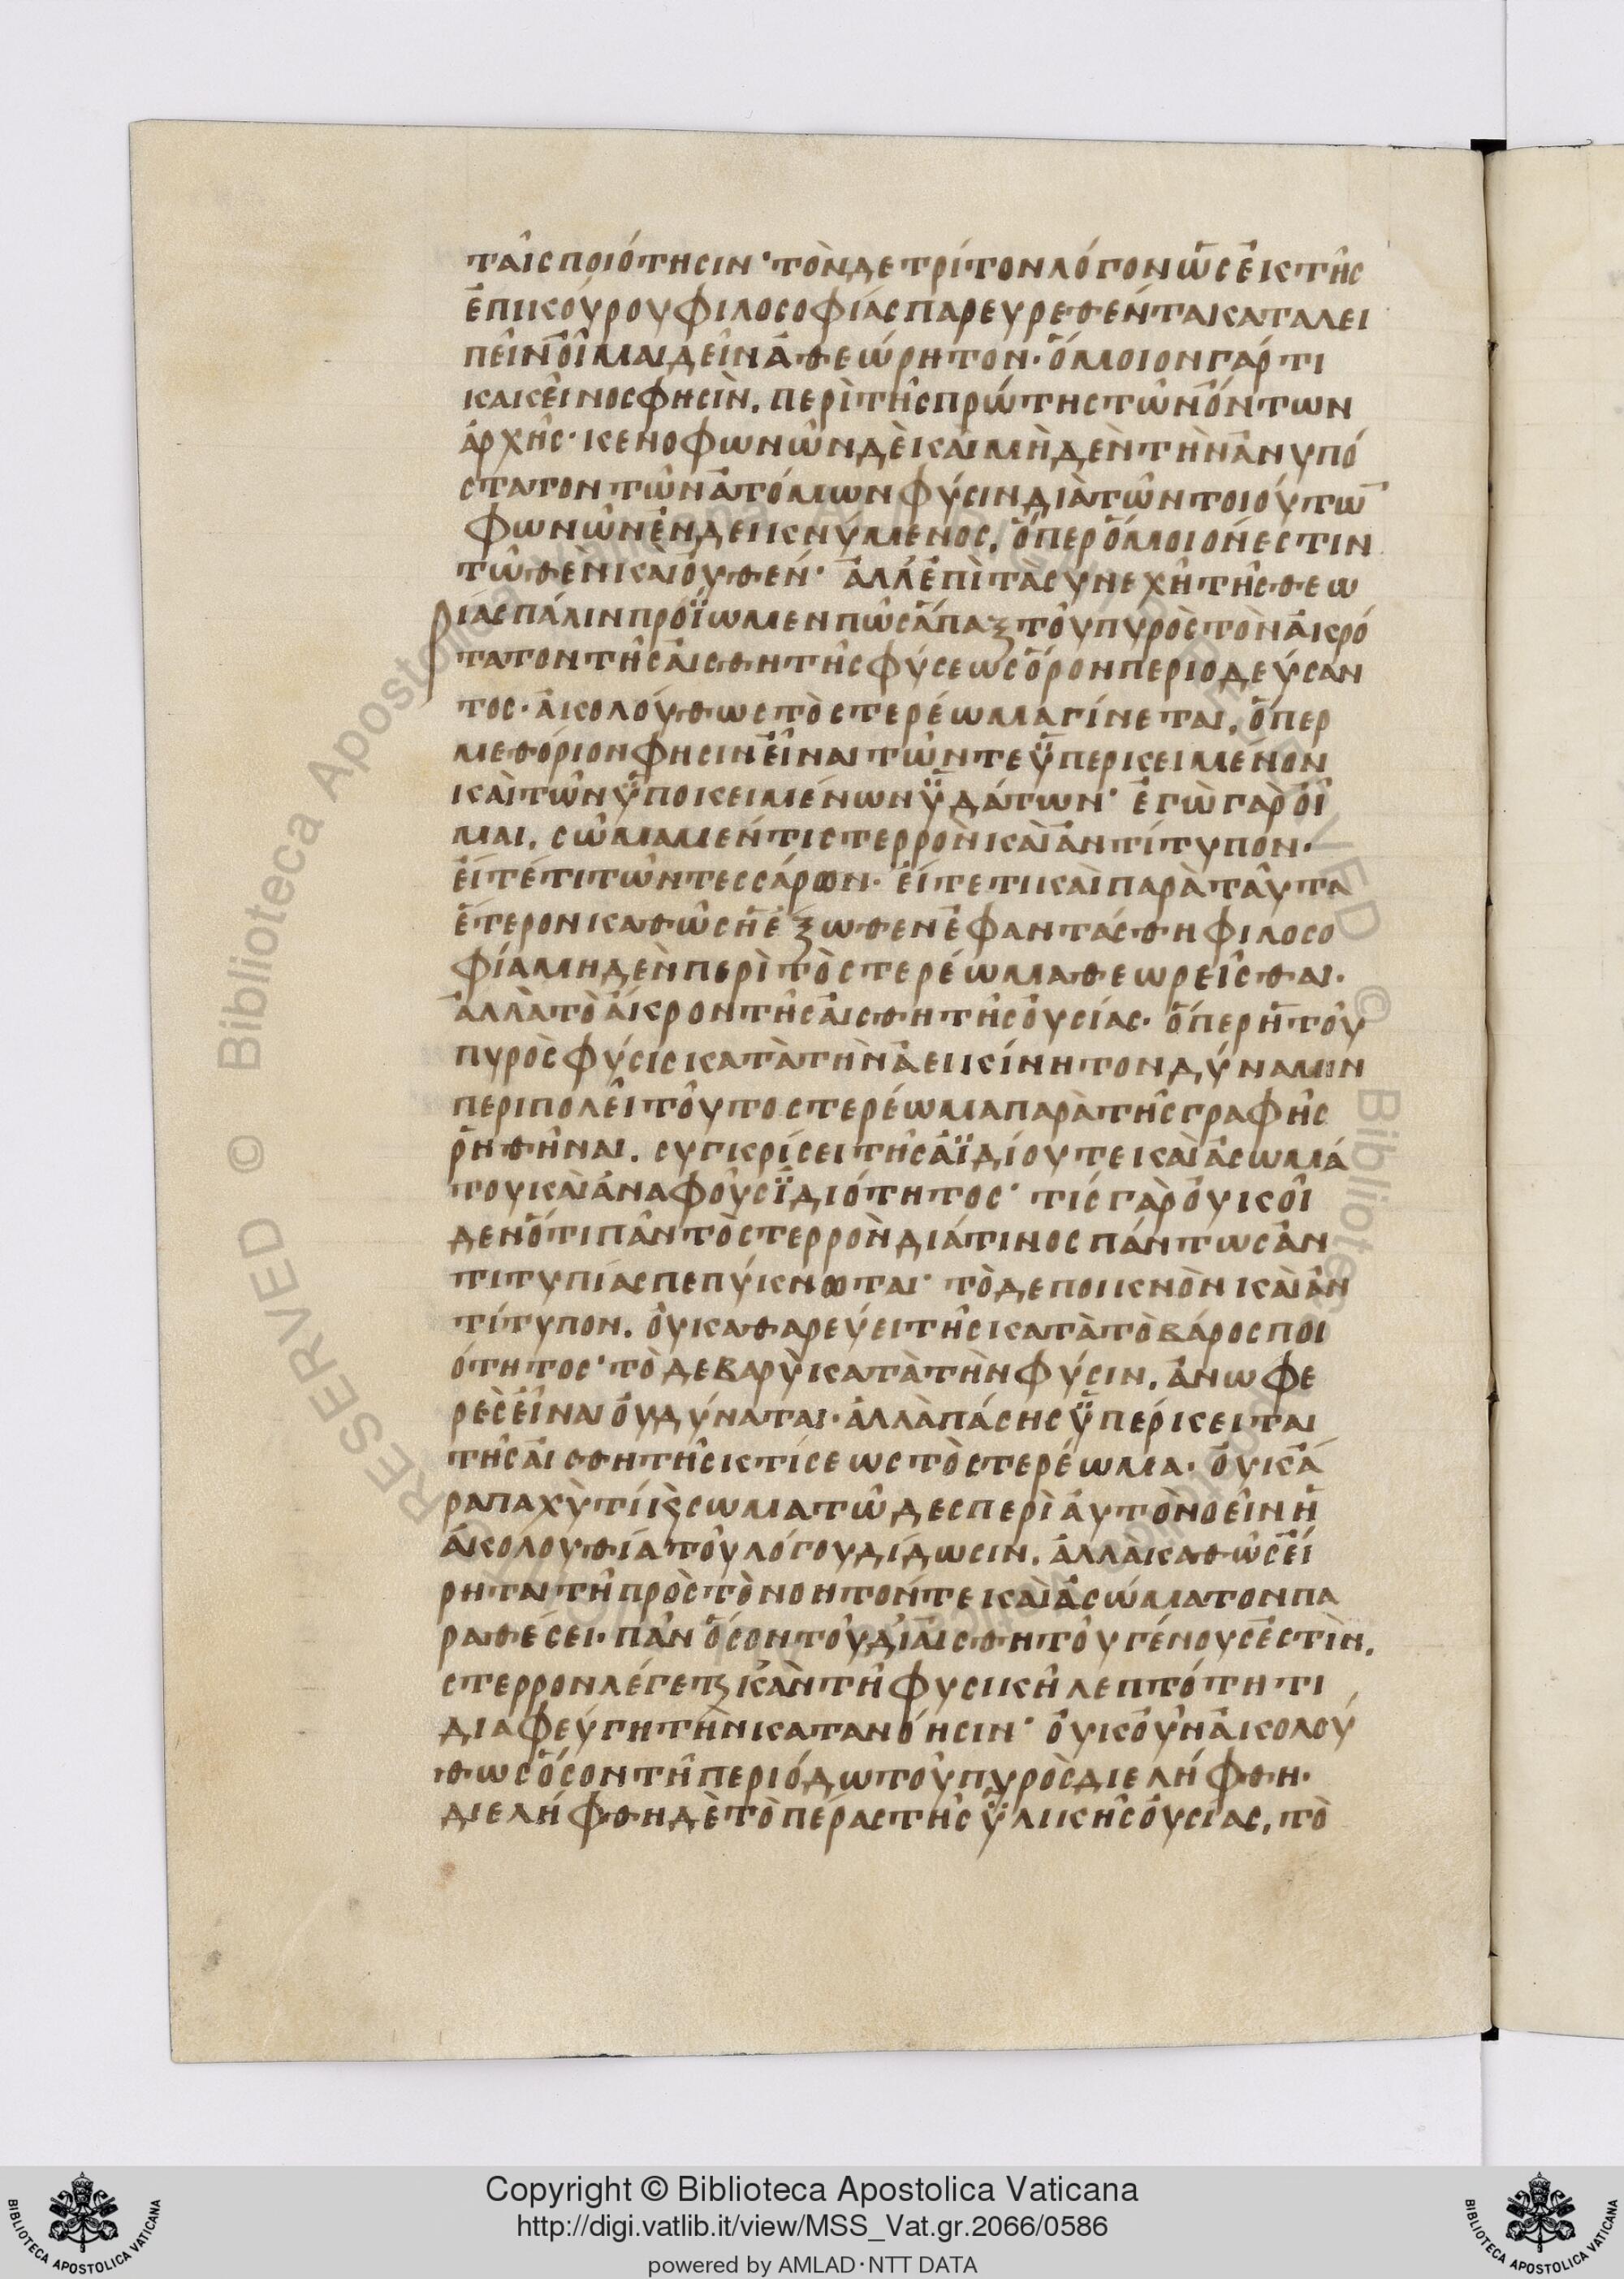 ταῖς ποιότησιν· τὸν δε τρίτον λόγον ὡς ἐκ τῆς
ἐπικούρου φιλοσοφίας παρευρεθέντα καταλει
πεῖν οἶμαι δεῖν ἀθεώρητον· ὅμοιον γάρ τι
κακεῖνος φησὶν. περὶ τῆς πρώτης τῶν ὄντων
ἀρχῆς· κενοφωνῶν δὲ καὶ μὴδὲν τὴν ἀνυπό
στατον τῶν ἀτόμων φύσιν διὰ τῶν τοιούτω̅
φωνῶν ἐνδεικνύμενος, ὅπερ ὅμοιόν εστιν
τῶ θὲν καὶ οὐθέν· ἀλλ' ἐπὶ τὰ συνεχῆ τῆς θεω
ρίας πάλιν προΐωμεν πῶς ἅπαξ τοῦ πυρὸς τὸν ἀκρό
τατον τῆς αἰσθητῆς φύσεως ὅρον περιοδεύσαν
τος· ἀκολούθως τὸ στερέωμα γίνεται, ὅπερ
μεθόριον φησιν εἶναι τῶν τε ὑπερκειμένον
καὶ τῶν ὑποκειμένων ὑδάτων· ἐγὼ γὰρ οἶ
μαι, σῶμα μέν τι στερρὸν καὶ ἀντίτυπον·
εἴτέ τι τῶν τεσσάρων· εἴτε τι καὶ παρὰ ταῦτα
ἕτερον καθὼς ἡ ἔξωθεν ἐφαντάσθη φιλοσο
φία μηδὲν περὶ τὸ στερέωμα θεωρεῖσθαι·
ἀλλὰ τὸ ἄκρον τῆς αἰσθητῆς οὐσίας· ὅπερ ἡ τοῦ
πυρὸς φύσις κατὰ τὴν ἀεικίνητον δύναμιν
περιπολεῖ τοῦτο στερέωμα παρὰ τῆς γραφῆς
ῥηθῆναι. συγκρίσει τῆς ἀϊδίου τε καὶ ἀσωμά
του καὶ ἀναφοῦς ϊδιότητος· τίς γὰρ οὐκ οἶ
δεν ὅτι πᾶν τὸ στερρὸν διά τινος πάντως ἀν
τιτυπίας πεπύκνωται· τὸ δε ποικνὸν καὶ ἀν
τίτυπον. οὐ καθαρεύει τῆς κατὰ τὸ βάρος ποι
ότητος· τὸ δε βαρὺ κατὰ τὴν φύσιν, ἀνωφε
ρὲς εἶναι οὐ δύναται· ἀλλὰ πάσης ὑπέρκειται
τῆς αἰσθητῆς κτίσεως τὸ στερέωμα· οὐκ ἄ
ρα παχὺ τί κ̀ σωματῶδες περὶ ἀυτὸ νοεῖν ἡ
ἀκολουθία τοῦ λόγου δίδωσιν. ἀλλὰ καθὼς εἴ
ρηται τῆ πρὸς τὸ νοητόν τε καὶ ἀσώματον πα
ραθέσει· πᾶν ὅσον τοῦ δι αἰσθητοῦ γένους ἐστὶν.
στερρον λέγετ(αι) κἀν τῆ φυσικῆ λεπτότητι
διαφεύγη τὴν κατανόησιν· οὐκοῦν ἀκολού
θως ὅσον τῆ περιόδω τοῦ πυρὸς διελήφθη·
διελήφθη δὲ τὸ πέρας τῆς ὑλικῆς οὐσίας, τὸ
Copyright © Biblioteca Apostolica Vaticana
http://digi.vatlib.it/view/MSS_Vat.gr.2066/0586
powered by AMLAD·NTT DATA